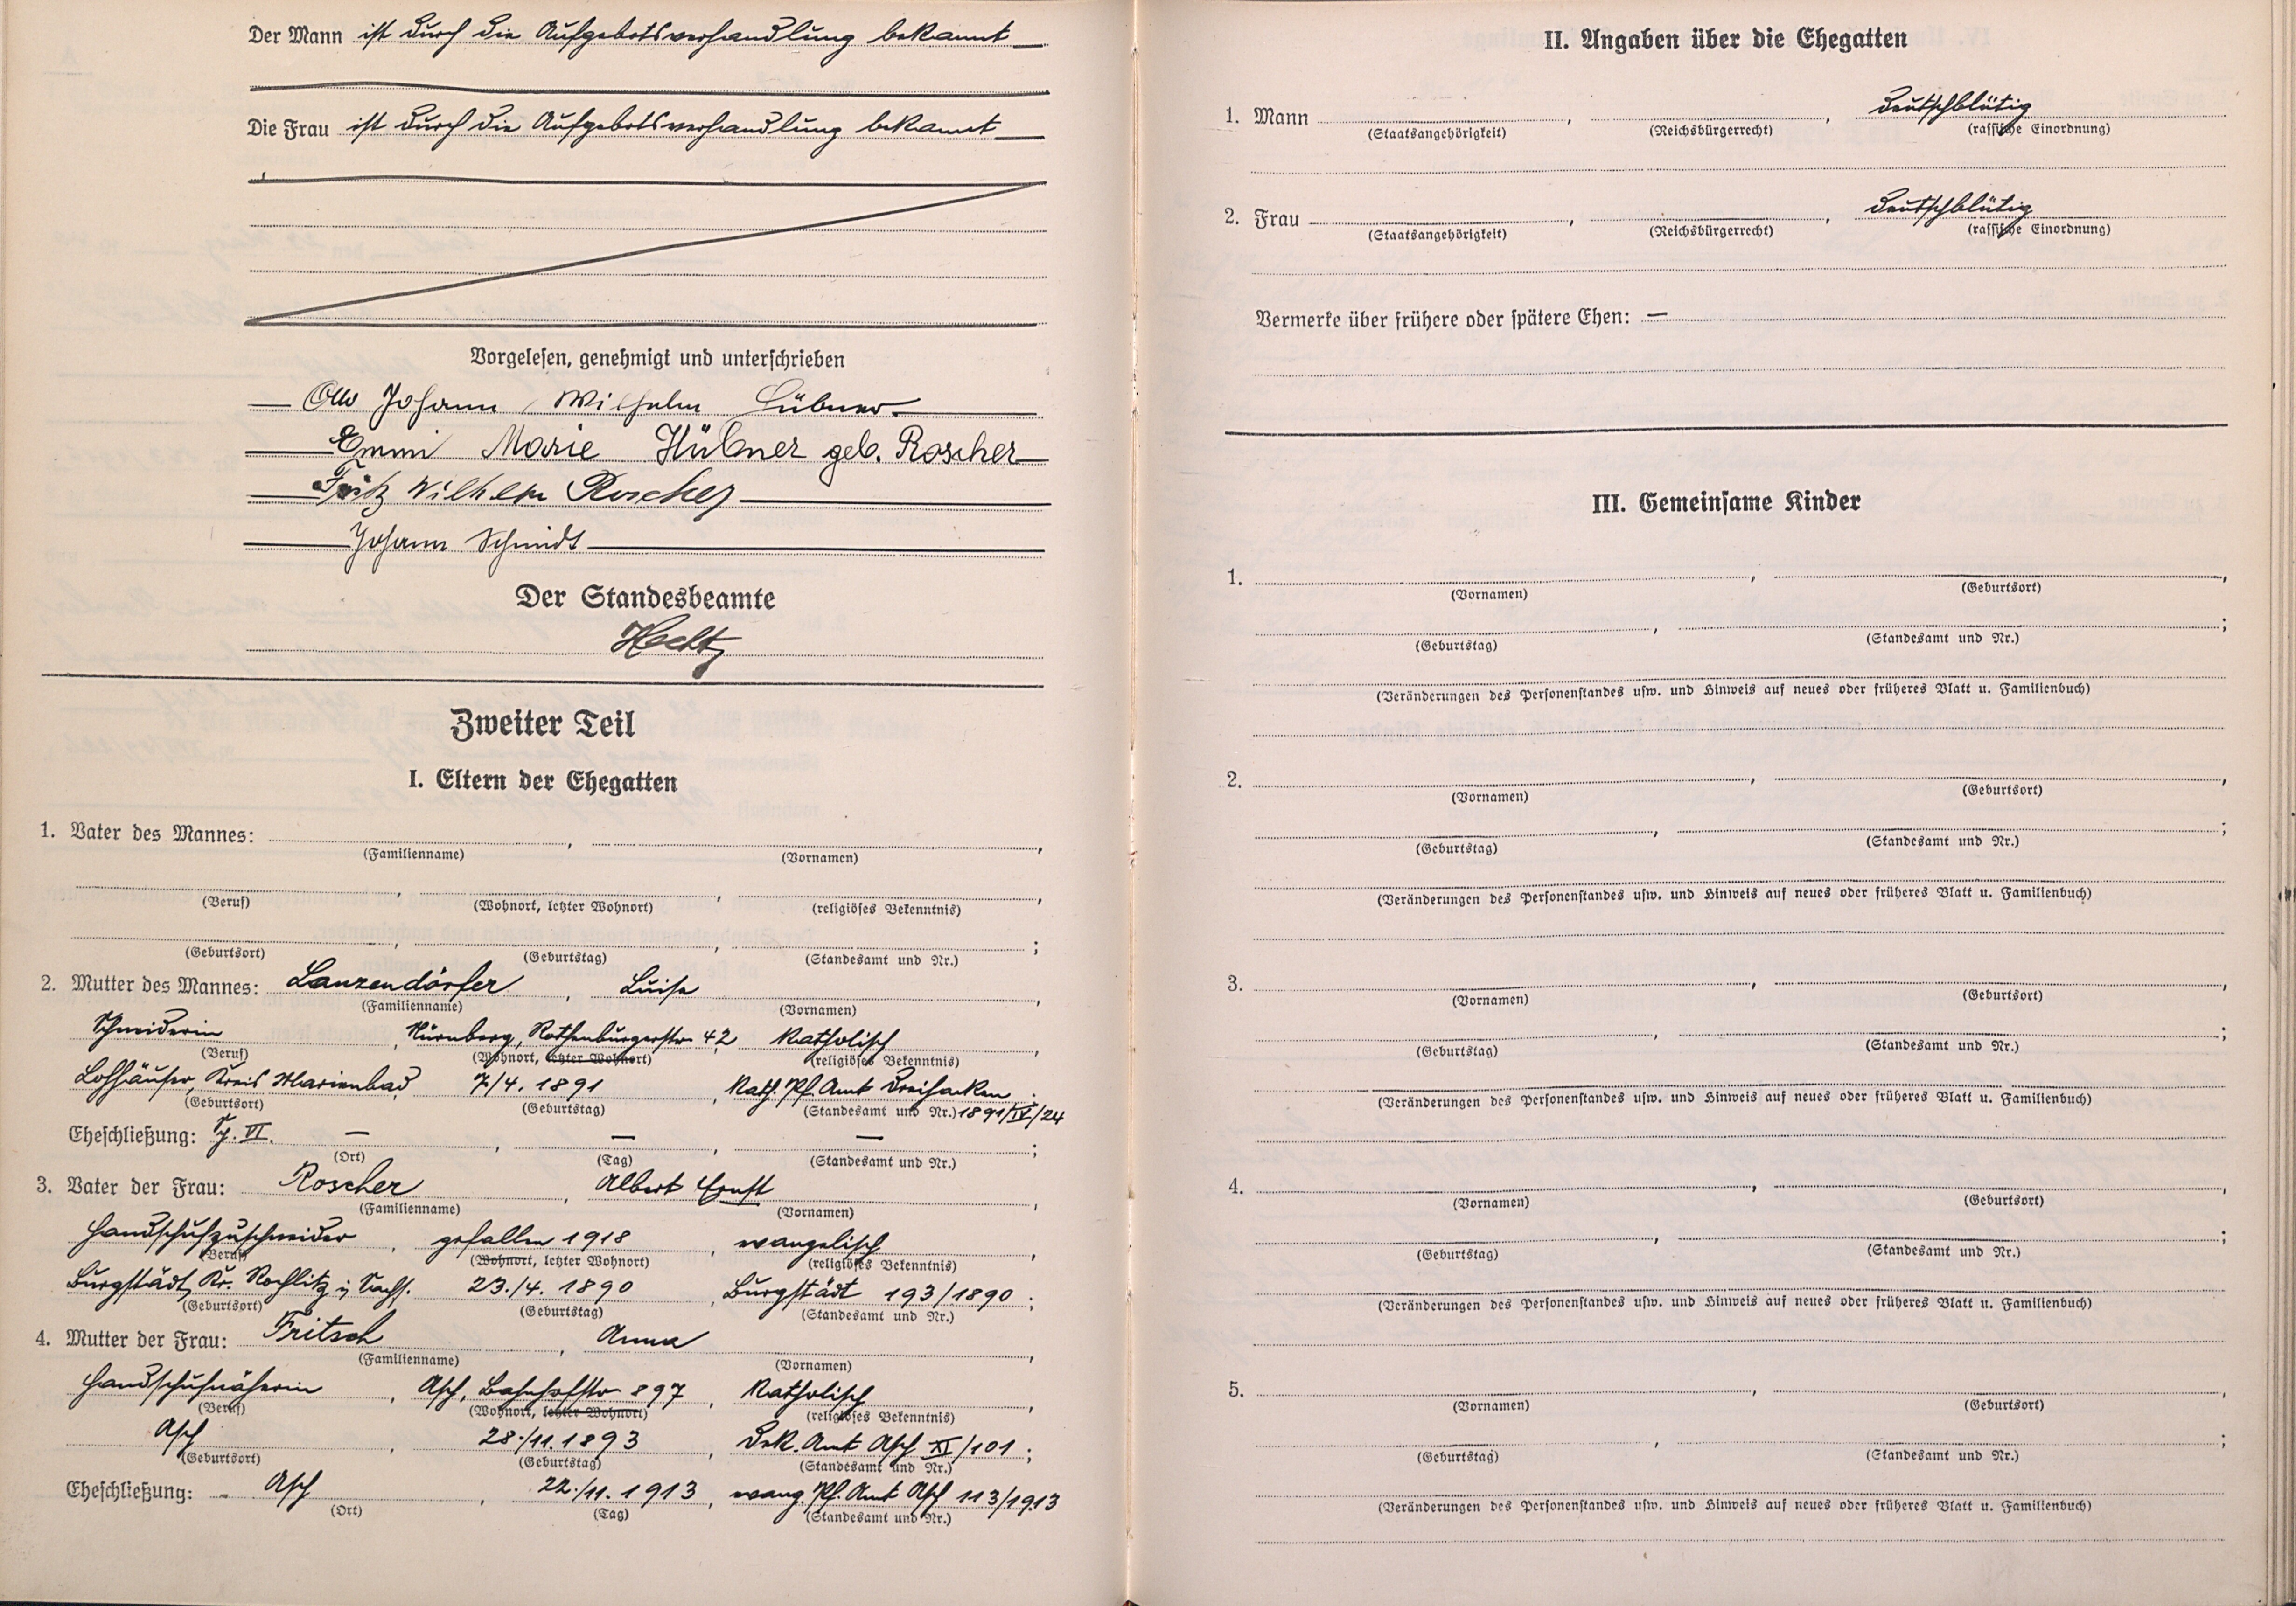 Der Mann ist durch die Aufgebotsverhandlung bekannt
Die Frau ist durch die Aufgebotsverhandlung bekannt
Vorgelesen, genehmigt und unterschrieben
Otto Johann Wilhelm Hübner
Emmi Marie Hübner geb. Roscher
Fritz Wilhelm Roscher
Johann Schmidt
Der Standesbeamte
Zweiter Teil
I. Eltern der Ehegatten
1. Vater des Mannes: , ,
(Familienname) (Vornamen)
, , ,
(Beruf) (Wohnort, letzter Wohnort) (religiöses Bekenntnis)
, , ;
(Geburtsort) (Geburtstag) (Standesamt und Nr.)
2. Mutter des Mannes: Lanzendörfer, Luise,
(Familienname) (Vornamen)
Schneiderin, Nürnberg, Rothenburgerstr 42, katholisch,
(Beruf) (Wohnort, letzter Wohnort) (religiöses Bekenntnis)
Lohhäuser, Kreis Marienbad, 7/4. 1891, Kath. Pf. Amt Dreihacken
(Geburtsort) (Geburtstag) (Standesamt und Nr.) 1891/IV/24
Eheschließung: VI. —, —, —;
(Ort) (Tag) (Standesamt und Nr.)
3. Vater der Frau: Roscher, Albert Ernst,
(Familienname) (Vornamen)
Handschuhzuschneider, gefallen 1918, evangelisch,
(Beruf) (Wohnort, letzter Wohnort) (religiöses Bekenntnis)
Burgstädt, Kr. Rochlitz i. Sachs. 23./4. 1890, Burgstädt 193/1890;
(Geburtsort) (Geburtstag) (Standesamt und Nr.)
4. Mutter der Frau: Fritsch, Anna,
(Familienname) (Vornamen)
Handschuhnäherin, Asch, Bahnhofstr 897, katholisch,
(Beruf) (Wohnort, letzter Wohnort) (religiöses Bekenntnis)
Asch, 28./11. 1893, Dek. Amt Asch XI/101;
(Geburtsort) (Geburtstag) (Standesamt und Nr.)
Eheschließung: - Asch, 22./11. 1913, evang. Pf. Amt Asch 113/1913
(Ort) (Tag) (Standesamt und Nr.)
II. Angaben über die Ehegatten
1. Mann , , deutschblütig
(Staatsangehörigkeit) (Reichsbürgerrecht) (rassische Einordnung)
2. Frau , , deutschblütig
(Staatsangehörigkeit) (Reichsbürgerrecht) (rassische Einordnung)
Vermerke über frühere oder spätere Ehen: —
III. Gemeinsame Kinder
1. , ,
(Vornamen) (Geburtsort)
, ;
(Geburtstag) (Standesamt und Nr.)
(Veränderungen des Personenstandes usw. und Hinweis auf neues oder früheres Blatt u. Familienbuch)
2. , ,
(Vornamen) (Geburtsort)
, ;
(Geburtstag) (Standesamt und Nr.)
(Veränderungen des Personenstandes usw. und Hinweis auf neues oder früheres Blatt u. Familienbuch)
3. , ,
(Vornamen) (Geburtsort)
, ;
(Geburtstag) (Standesamt und Nr.)
(Veränderungen des Personenstandes usw. und Hinweis auf neues oder früheres Blatt u. Familienbuch)
4. , ,
(Vornamen) (Geburtsort)
, ;
(Geburtstag) (Standesamt und Nr.)
(Veränderungen des Personenstandes usw. und Hinweis auf neues oder früheres Blatt u. Familienbuch)
5. , ,
(Vornamen) (Geburtsort)
, ;
(Geburtstag) (Standesamt und Nr.)
(Veränderungen des Personenstandes usw. und Hinweis auf neues oder früheres Blatt u. Familienbuch)